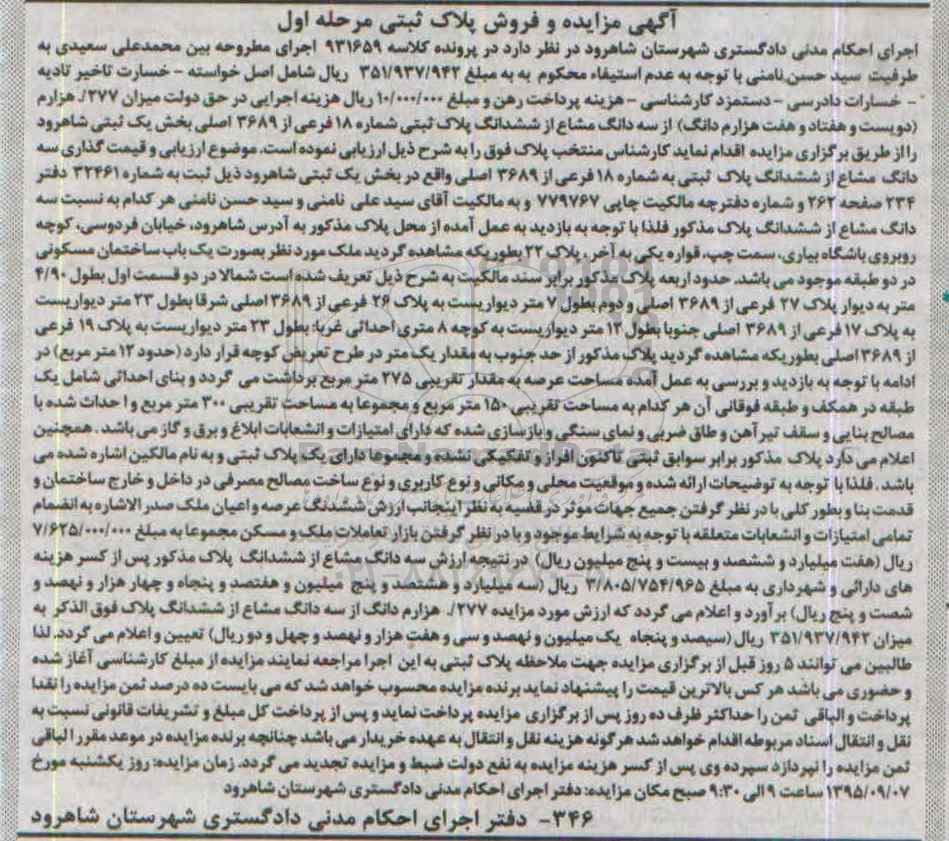 آگهی مزایده و فروش پلاک ثبتی مرحله اول
اجرای احکام مدنی دادگستری شهرستان شاهرود در نظر دارد در پرونده کلاسه ۹۳۱۶۵۹ اجرای مطروحه بین محمدعلی سعیدی به
طرفیت سید حسن نامنی با توجه به عدم استیفاء محکوم به به مبلغ ۳۵۱/۹۳۷/۹۴۲ ریال شامل اصل خواسته - خسارت تاخیر تادیه
- خسارات دادرسی - دستمزد کارشناسی - هزینه پرداخت رهن و مبلغ ۱۰/۰۰۰/۰۰۰ ریال هزینه اجرایی در حق دولت میزان ۲۷۷/. هزارم
(دویست و هفتاد و هفت هزارم دانگ) از سه دانگ مشاع از ششدانگ پلاک ثبتی شماره ۱۸ فرعی از ۳۶۸۹ اصلی بخش یک ثبتی شاهرود
را از طریق برگزاری مزایده اقدام نماید کارشناس منتخب پلاک فوق را به شرح ذیل ارزیابی نموده است. موضوع ارزیابی و قیمت گذاری سه
دانگ مشاع از ششدانگ پلاک ثبتی به شماره ۱۸ فرعی از ۳۶۸۹ اصلی واقع در بخش یک ثبتی شاهرود ذیل ثبت به شماره ۳۲۴۶۱ دفتر
۲۳۴ صفحه ۲۶۲ و شماره دفترچه مالکیت چاپی ۷۷۹۷۶۷ و به مالکیت آقای سید علی نامنی و سید حسن نامنی هر کدام به نسبت سه
دانگ مشاع از ششدانگ پلاک مذکور فلذا با توجه به بازدید به عمل آمده از محل پلاک مذکور به آدرس شاهرود، خیابان فردوسی، کوچه
روبروی باشگاه بیاری، سمت چپ، قواره یکی به آخر، پلاک ۲۲ بطوریکه مشاهده گردید ملک مورد نظر بصورت یک باب ساختمان مسکونی
در دو طبقه موجود می باشد. حدود اربعه پلاک مذکور برابر سند مالکیت به شرح ذیل تعریف شده است شمالا در دو قسمت اول بطول ۴/۹۰
متر به دیوار پلاک ۲۷ فرعی از ۳۶۸۹ اصلی و دوم بطول ۷ متر دیواریست به پلاک ۲۶ فرعی از ۳۶۸۹ اصلی شرقا بطول ۲۳ متر دیواریست
به پلاک ۱۷ فرعی از ۳۶۸۹ اصلی جنوبا بطول ۱۲ متر دیواریست به کوچه ۸ متری احداثی غربا: بطول ۲۳ متر دیواریست به پلاک ۱۹ فرعی
از ۳۶۸۹ اصلی بطوریکه مشاهده گردید پلاک مذکور از حد جنوب به مقدار یک متر در طرح تعریض کوچه قرار دارد (حدود ۱۲ متر مربع) در
ادامه با توجه به بازدید و بررسی به عمل آمده مساحت عرصه به مقدار تقریبی ۲۷۵ متر مربع برداشت می گردد و بنای احداثی شامل یک
طبقه در همکف و طبقه فوقانی آن هر کدام به مساحت تقریبی ۱۵۰ متر مربع و مجموعا به مساحت تقریبی ۳۰۰ متر مربع و احداث شده با
مصالح بنایی و سقف تیرآهن و طاق ضربی و نمای سنگی و بازسازی شده که دارای امتیازات و انشعابات ابلاغ و برق و گاز می باشد. همچنین
اعلام می دارد پلاک مذکور برابر سوابق ثبتی تاکنون افراز و تفکیکی نشده و مجموعا دارای یک پلاک ثبتی و به نام مالکین اشاره شده می
باشد. فلذا با توجه به توضیحات ارائه شده و موقعیت محلی و مکانی و نوع کاربری و نوع ساخت مصالح مصرفی در داخل و خارج ساختمان و
قدمت بنا و بطور کلی با در نظر گرفتن جمیع جهات موثر در قضیه به نظر اینجانب ارزش ششدنگ عرصه و اعیان ملک صدر الاشاره به انضمام
تمامی امتیازات و انشعابات متعلقه با توجه به شرایط موجود و با در نظر گرفتن بازار تعاملات ملک و مسکن مجموعا به مبلغ ۷/۶۲۵/۰۰۰/۰۰۰
ریال (هفت میلیارد و ششصد و بیست و پنج میلیون ریال) در نتیجه ارزش سه دانگ مشاع از ششدانگ پلاک مذکور پس از کسر هزینه
های دارائی و شهرداری به مبلغ ۳/۸۰۵/۷۵۴/۹۶۵ ریال (سه میلیارد و هشتصد و پنج میلیون و هفتصد و پنجاه و چهار هزار و نهصد و
شصت و پنج ریال) برآورد و اعلام می گردد که ارزش مورد مزایده ۲۷۷/. هزارم دانگ از سه دانگ مشاع از ششدانگ پلاک فوق الذکر به
میزان ۳۵۱/۹۳۷/۹۴۲ ریال (سیصد و پنجاه یک میلیون و نهصد و سی و هفت هزار و نهصد و چهل و دو ریال) تعیین و اعلام می گردد. لذا
طالبین می توانند ۵ روز قبل از برگزاری مزایده جهت ملاحظه پلاک ثبتی به این اجرا مراجعه نمایند مزایده از مبلغ کارشناسی آغاز شده
و حضوری می باشد هر کس بالاترین قیمت را پیشنهاد نماید برنده مزایده محسوب خواهد شد که می بایست ده درصد ثمن مزایده را نقدا
پرداخت و الباقی ثمن را حداکثر ظرف ده روز پس از برگزاری مزایده پرداخت نماید و پس از پرداخت کل مبلغ و تشریفات قانونی نسبت به
نقل و انتقال اسناد مربوطه اقدام خواهد شد هرگونه هزینه نقل و انتقال به عهده خریدار می باشد چنانچه برنده مزایده در موعد مقرر الباقی
ثمن مزایده را نپردازد سپرده وی پس از کسر هزینه مزایده به نفع دولت ضبط و مزایده تجدید می گردد. زمان مزایده: روز یکشنبه مورخ
۱۳۹۵/۰۹/۰۷ ساعت ۹ الی ۹:۳۰ صبح مکان مزایده: دفتر اجرای احکام مدنی دادگستری شهرستان شاهرود
۳۴۶- دفتر اجرای احکام مدنی دادگستری شهرستان شاهرود